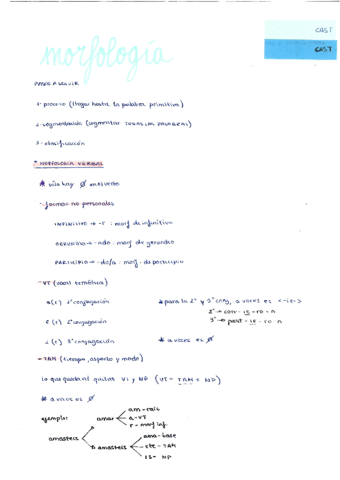 CAST
CAST
morfología
PASOS A SEGUIR
1- proceso (llegar hasta la palabra primitiva)
2- segmentación (segmentar TODAS LAS PALABRAS)
3- clasificación
* MORFOLOGÍA VERBAL
* sólo hay Ø en verbo
- formas no personales
INFINITIVO → -r : morf de infinitivo
GERUNDIO → -ndo : morf de gerundio
PARTICIPIO → -do/a : morf. de participio
- VT (vocal temática)
a (1) 1ª conjugación
* para la 2ª y 3ª conj, a veces es <-ie->
2ª → com - ie - ro - n
e (2) 2ª conjugación
3ª → part - ie - ro - n
i (3) 3ª conjugación
* a veces es Ø
- TAM (tiempo, aspecto y modo)
lo que queda al quitar VT y NP (VT - TAM - NP)
* a veces es Ø
am - raíz
ejemplo:
amar
a - VT
r - morf inf.
amasteis
ama - base
amasteis
ste - TAM
is - NP